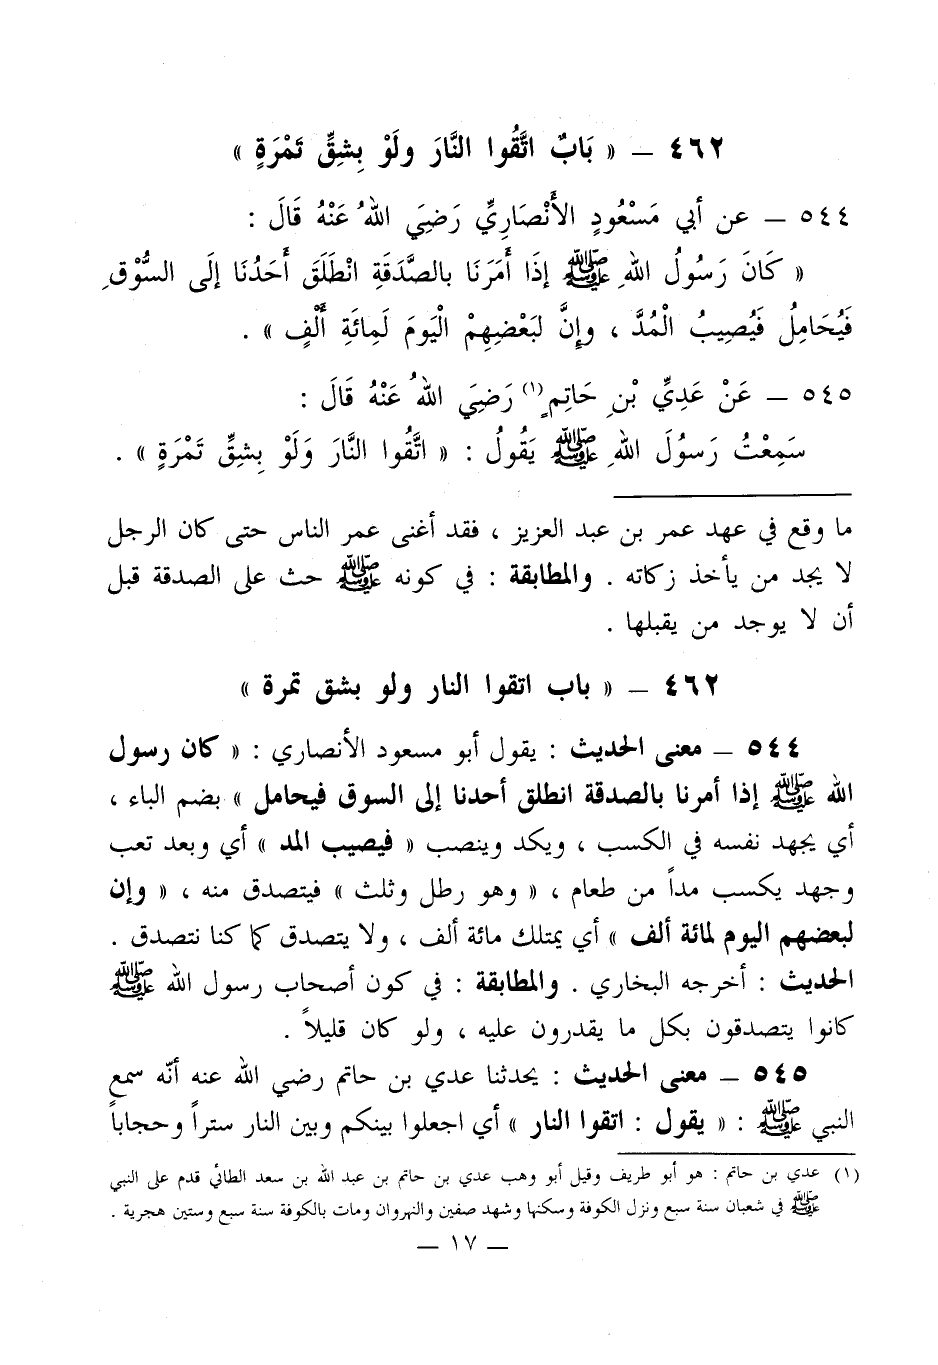 ٤٦٢ – « بَابٌ اتَّقُوا النَّارَ ولَوْ بِشِقِّ تَمْرَةٍ »
٥٤٤ – عن أبي مَسْعُودٍ الأَنْصَارِيِّ رَضِيَ اللهُ عَنْهُ قَالَ :
« كَانَ رَسُولُ اللهِ ﷺ إذَا أَمَرَنَا بالصَّدَقَةِ انْطَلَقَ أَحَدُنَا إلَى السُّوْقِ
فَيُحَامِلُ فَيُصِيبُ الْمُدَّ ، وإِنَّ لبَعْضِهِمْ الْيَوْمَ لَمِائَةِ أَلْفٍ » .
٥٤٥ – عَنْ عَدِيِّ بْنِ حَاتِمٍ(١) رَضِيَ اللهُ عَنْهُ قَالَ :
سَمِعْتُ رَسُولَ اللهِ ﷺ يَقُولُ : « اتَّقُوا النَّارَ وَلَوْ بِشِقِّ تَمْرَةٍ » .
ما وقع في عهد عمر بن عبد العزيز ، فقد أغنى عمر الناس حتى كان الرجل
لا يجد من يأخذ زكاته . والمطابقة : في كونه ﷺ حث على الصدقة قبل
أن لا يوجد من يقبلها .
٤٦٢ – « باب اتقوا النار ولو بشق تمرة »
٥٤٤ – معنى الحديث : يقول أبو مسعود الأنصاري : « كان رسول
الله ﷺ إذا أمرنا بالصدقة انطلق أحدنا إلى السوق فيحامل » بضم الياء ،
أي يجهد نفسه في الكسب ، ويكد وينصب « فيصيب المد » أي وبعد تعب
وجهد يكسب مداً من طعام ، « وهو رطل وثلث » فيتصدق منه ، « وإن
لبعضهم اليوم لمائة ألف » أي يمتلك مائة ألف ، ولا يتصدق كما كنا نتصدق .
الحديث : أخرجه البخاري . والمطابقة : في كون أصحاب رسول الله ﷺ
كانوا يتصدقون بكل ما يقدرون عليه ، ولو كان قليلاً .
٥٤٥ – معنى الحديث : يحدثنا عدي بن حاتم رضي الله عنه أنّه سمع
النبي ﷺ : « يقول : اتقوا النار » أي اجعلوا بينكم وبين النار ستراً وحجاباً
(١) عدي بن حاتم : هو أبو طريف وقيل أبو وهب عدي بن حاتم بن عبد الله بن سعد الطائي قدم على النبي
ﷺ في شعبان سنة سبع ونزل الكوفة وسكنها وشهد صفين والنهروان ومات بالكوفة سنة سبع وستين هجرية .
– ١٧ –